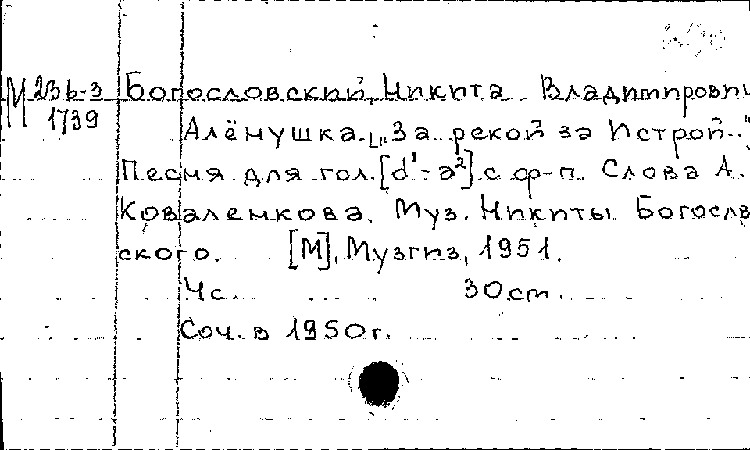 М 23 6-3 Богословский, Никита Владимирови
1739
Алёнушка. [„За рекой за Истрой.."
Песня для гол. [d¹-a²] с ф-п. Слова А.
Коваленкова. Муз. Никиты Богослов
ского. [М], Музгиз, 1951.
4 с. 30 cm.
Соч. в 1950 г.